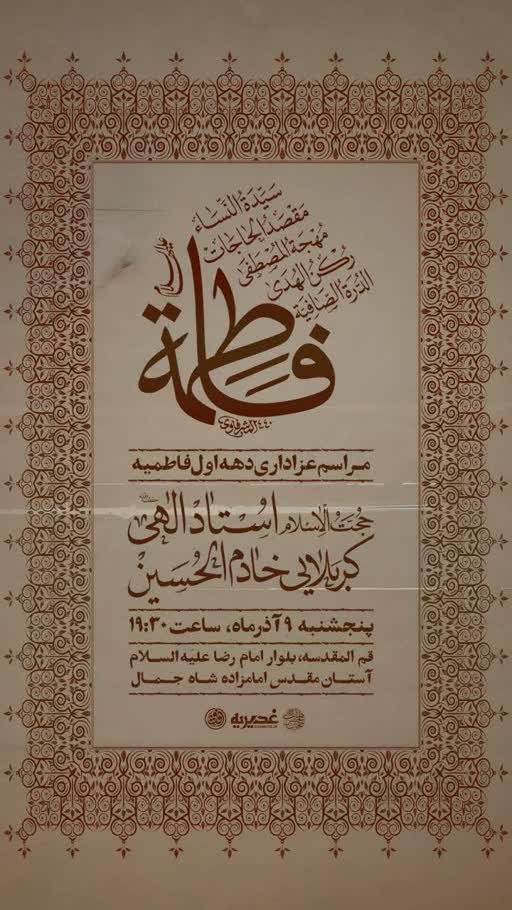 سَيِّدَةُ النِّسَاء
مَقْصَدُ الحَاجَات
مُهْجَةُ المُصْطَفَى
رُكْنُ الهُدَى
الدُّرَّةُ الصَّافِيَة
فاطمة
مراسم عزاداری دهه اول فاطمیه
حجت الاسلام استاد الهی
کربلایی خادم الحسین
پنجشنبه ۹ آذرماه، ساعت ۱۹:۳۰
قم المقدسه، بلوار امام رضا علیه السلام
آستان مقدس امامزاده شاه جمال
غدیریه